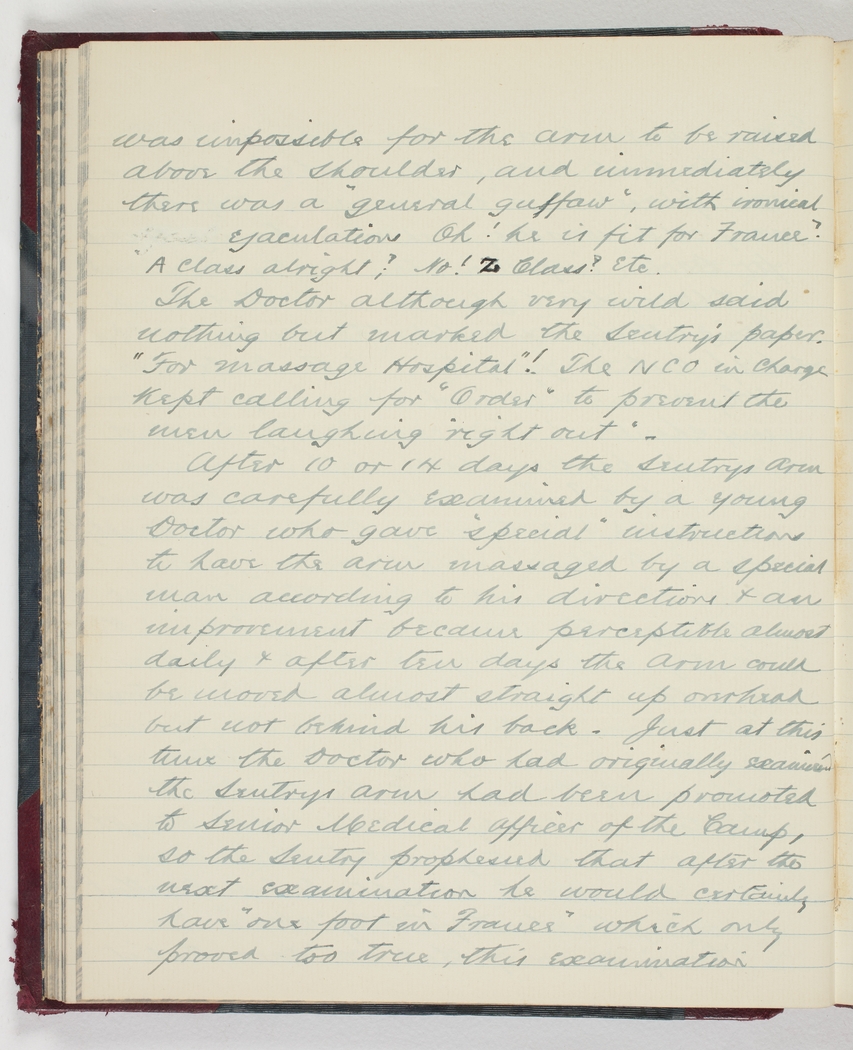 was impossible for the arm to be raised
above the shoulder, and immediately
there was a "general guffaw", with ironical
ejaculations Oh! he is fit for France"?
"A Class alright? No! Z Class? Etc.
The Doctor although very wild said
nothing but marked the Sentry's paper.
"For massage Hospital"! The NCO in Charge
kept calling for "Order" to prevent the
men laughing "right out".
After 10 or 14 days the Sentrys arm
was carefully examined by a young
Doctor who gave "special" instructions
to have the arm massaged by a special
man according to his directions & an
improvement became perceptible almost
daily & after ten days the arm could
be moved almost straight up overhead
but not behind his back. Just at this
time the Doctor who had originally examined
the Sentrys arm had been promoted
to Senior Medical Officer of the Camp,
so the Sentry prophesied that after the
next examination he would certainly
have "one foot in France" which only
proved too true, this examination